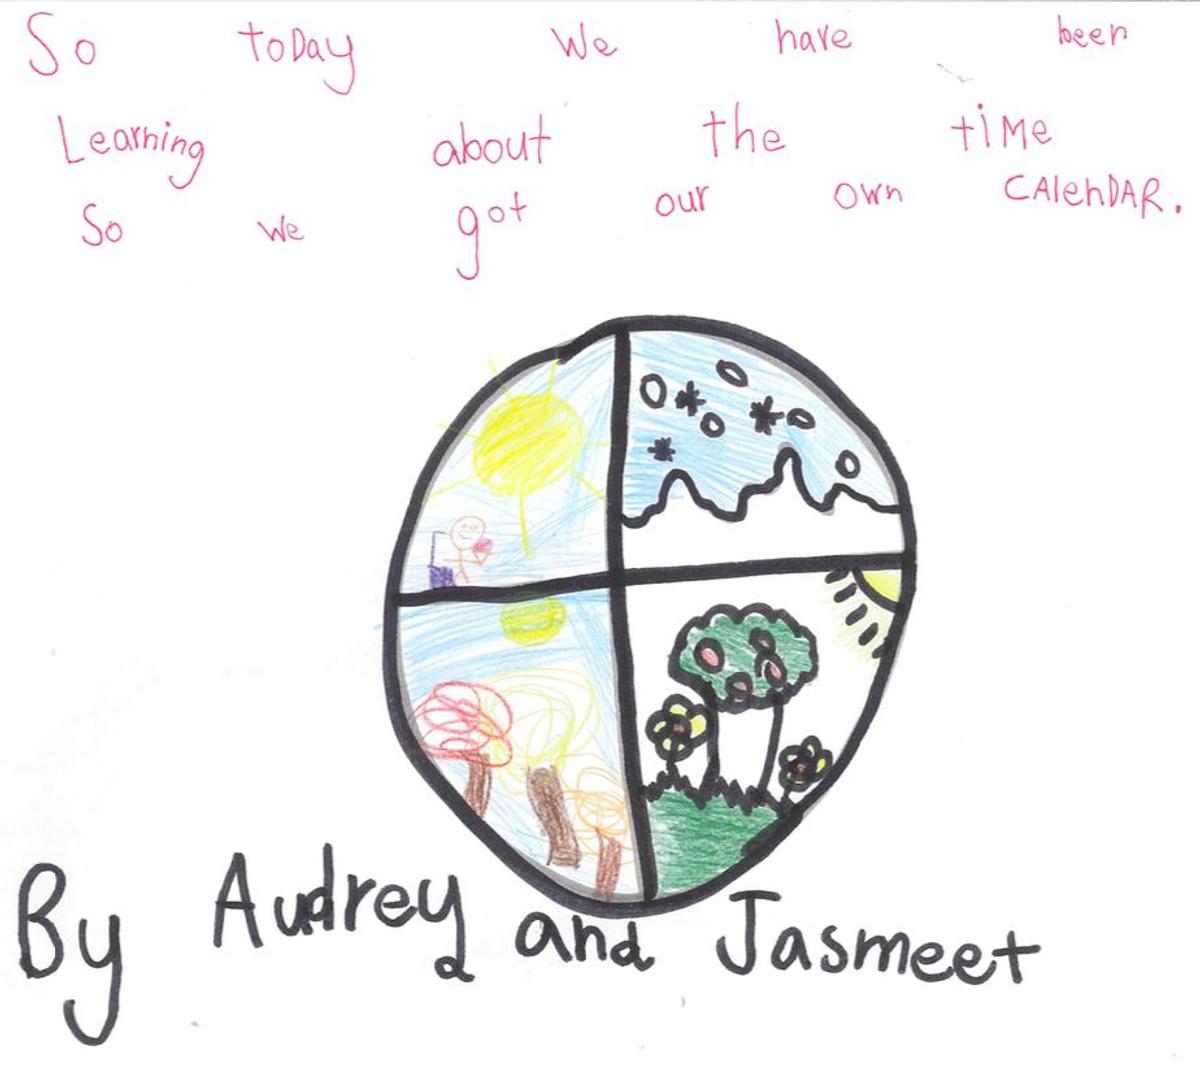 So toDay We have been
Learning about the tiMe
So we got our own CAlenDAR.
By Audrey and Jasmeet